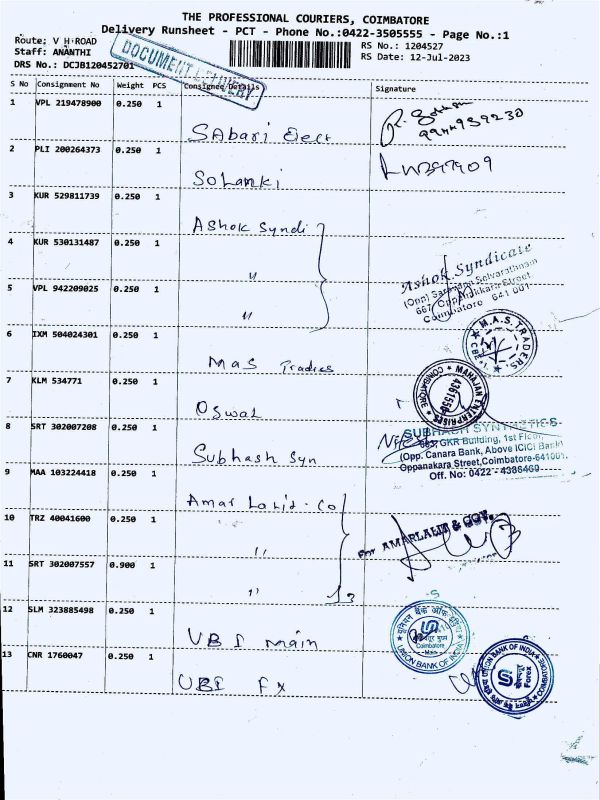 THE PROFESSIONAL COURIERS, COIMBATORE
Delivery Runsheet - PCT - Phone No.:0422-3505555 - Page No.:1
Route: V H ROAD
Staff: ANANTHI
DRS No.: DCJB120452701
DOCUMENT DELIVERY
RS No.: 1204527
RS Date: 12-Jul-2023
S No Consignment No Weight PCS Consignee Details Signature
1 VPL 219478900 0.250 1 Sabari Elect
9944939230
2 PLI 200264373 0.250 1 Solanki
3 KUR 529811739 0.250 1 Ashok Syndi
4 KUR 530131487 0.250 1 "
Ashok Syndicate
667, Oppanakkara Street,
Coimbatore 641 001
5 VPL 942209025 0.250 1 "
6 IXM 504024301 0.250 1 Mas Trades
M.A.S. TRADERS
CBE
7 KLM 534771 0.250 1 Oswal
MAHAJAN ENTERPRISES
COIMBATORE
8 SRT 302007208 0.250 1 Subhash Syn
SUBHASH SYNTHETICS
683, GKR Building, 1st Floor,
(Opp. Canara Bank, Above ICICI Bank)
Oppanakara Street, Coimbatore-641001.
Off. No: 0422 - 4386460
9 MAA 103224418 0.250 1 Amar Lalid - Co
10 TRZ 40041600 0.250 1 "
For AMARLALIT & COY.
11 SRT 302007557 0.900 1 "
12 SLM 323885498 0.250 1 UBI Main
यूनियन बैंक ऑफ इंडिया
Coimbatore
Main
UNION BANK OF INDIA
13 CNR 1760047 0.250 1 UBI FX
UNION BANK OF INDIA
COIMBATORE
Forex